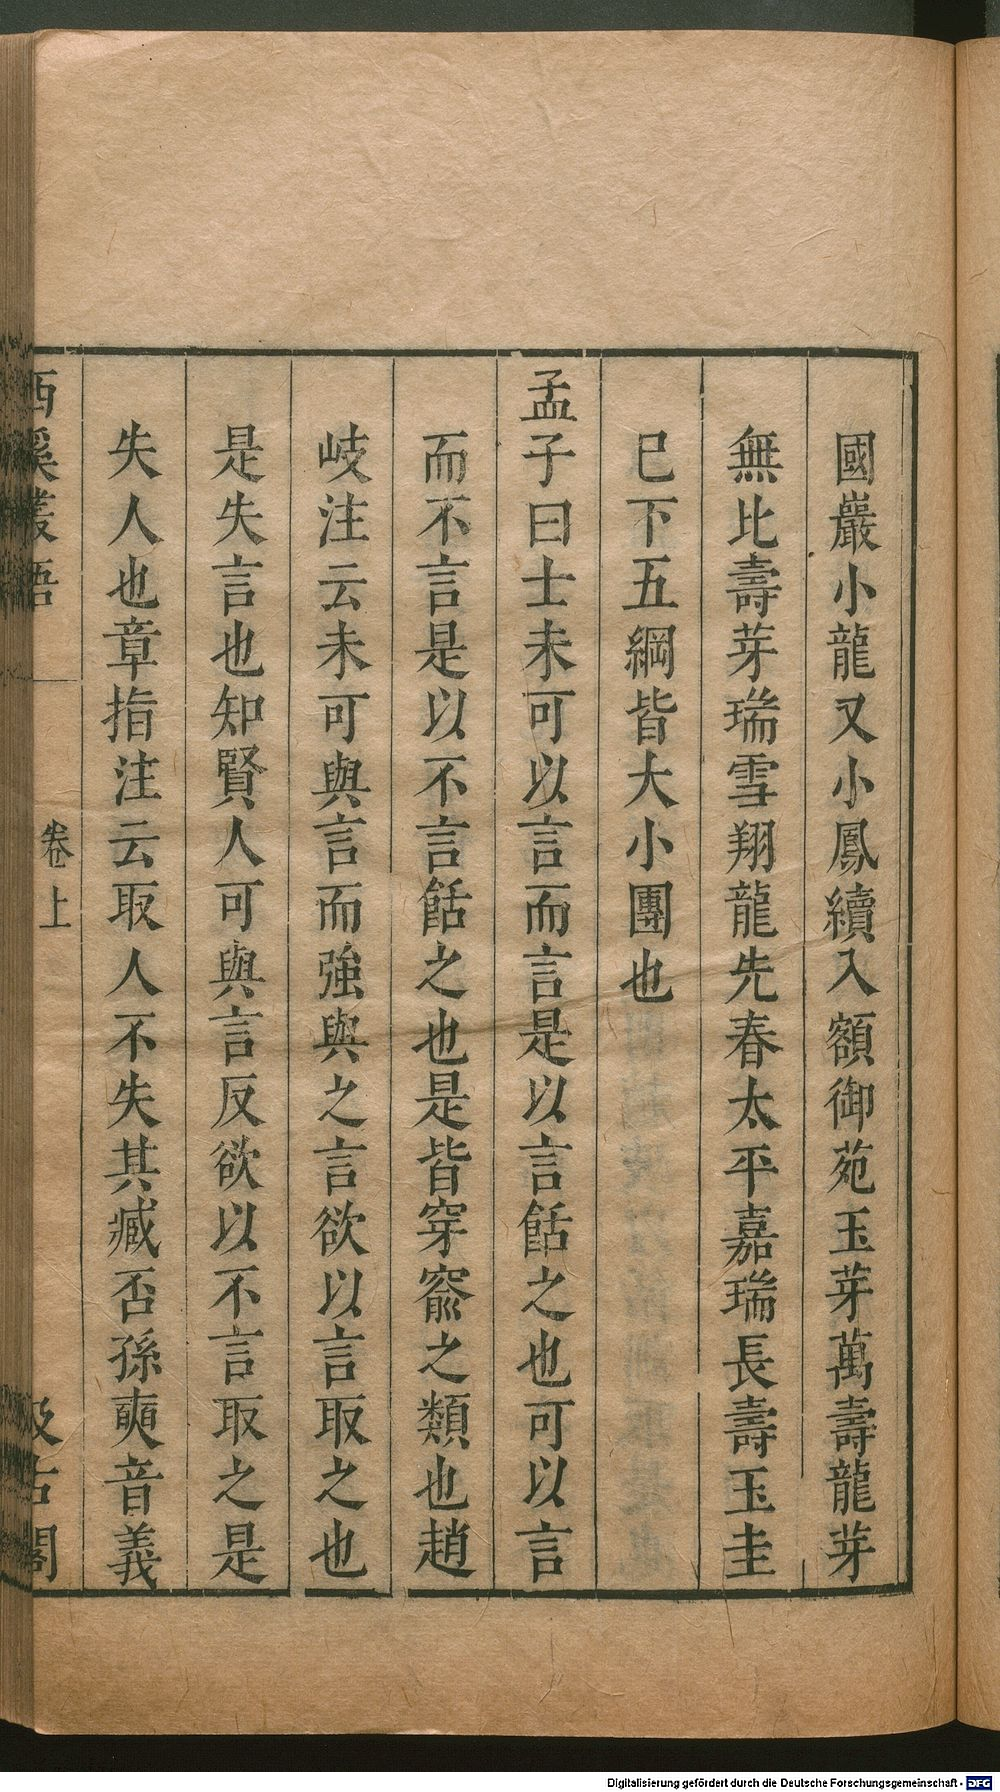 國巖小龍又小鳳續入額御苑玉芽萬壽龍芽
無比壽芽瑞雪翔龍先春太平嘉瑞長壽玉圭
已下五綱皆大小團也
孟子曰士未可以言而言是以言餂之也可以言
而不言是以不言餂之也是皆穿窬之類也趙
岐注云未可與言而強與之言欲以言取之也
是失言也知賢人可與言反欲以不言取之是
失人也章指注云取人不失其臧否孫奭音義
西溪叢語 卷上 汲古閣
Digitalisierung gefördert durch die Deutsche Forschungsgemeinschaft - DFG